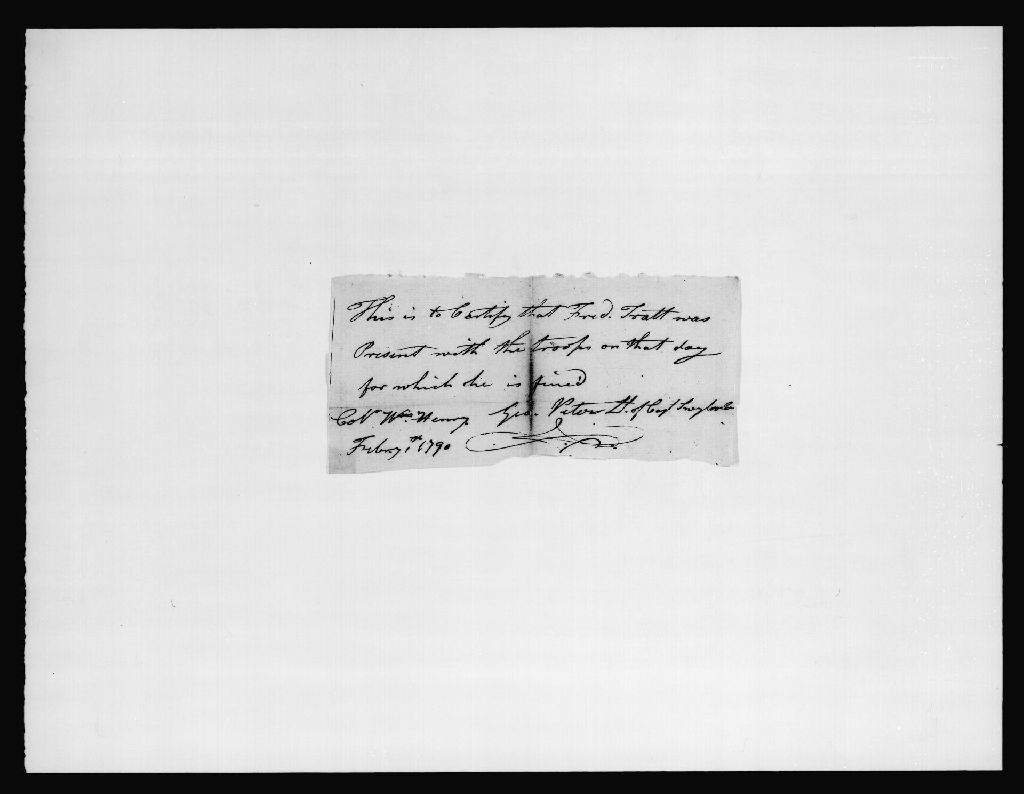 This is to Certify that Fred. Tratt was
Present with the troops on that day
for which he is fined
Col. Wm. Henry Geo. Peter Lt. of Capt
Febry 1st 1790